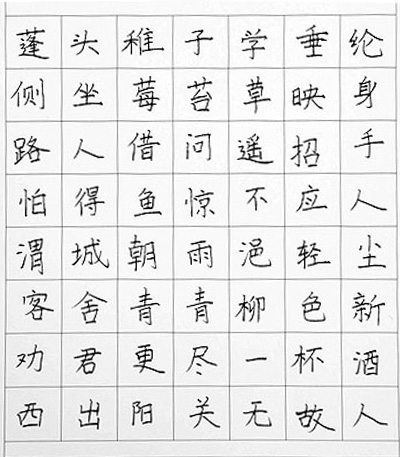 蓬头稚子学垂纶
侧坐莓苔草映身
路人借问遥招手
怕得鱼惊不应人
渭城朝雨浥轻尘
客舍青青柳色新
劝君更尽一杯酒
西出阳关无故人